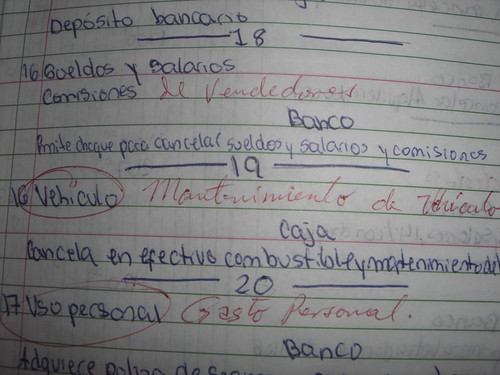 Depósito bancario
18
16 Sueldos y Salarios
Comisiones de Vendedores
Banco
Emite cheque para cancelar sueldos y salarios y comisiones
19
16 Vehículo Mantenimiento de Vehículo
Caja
Cancela en efectivo combustible y matenimiento del
20
17 Uso personal Gasto Personal.
Banco
Adquiere